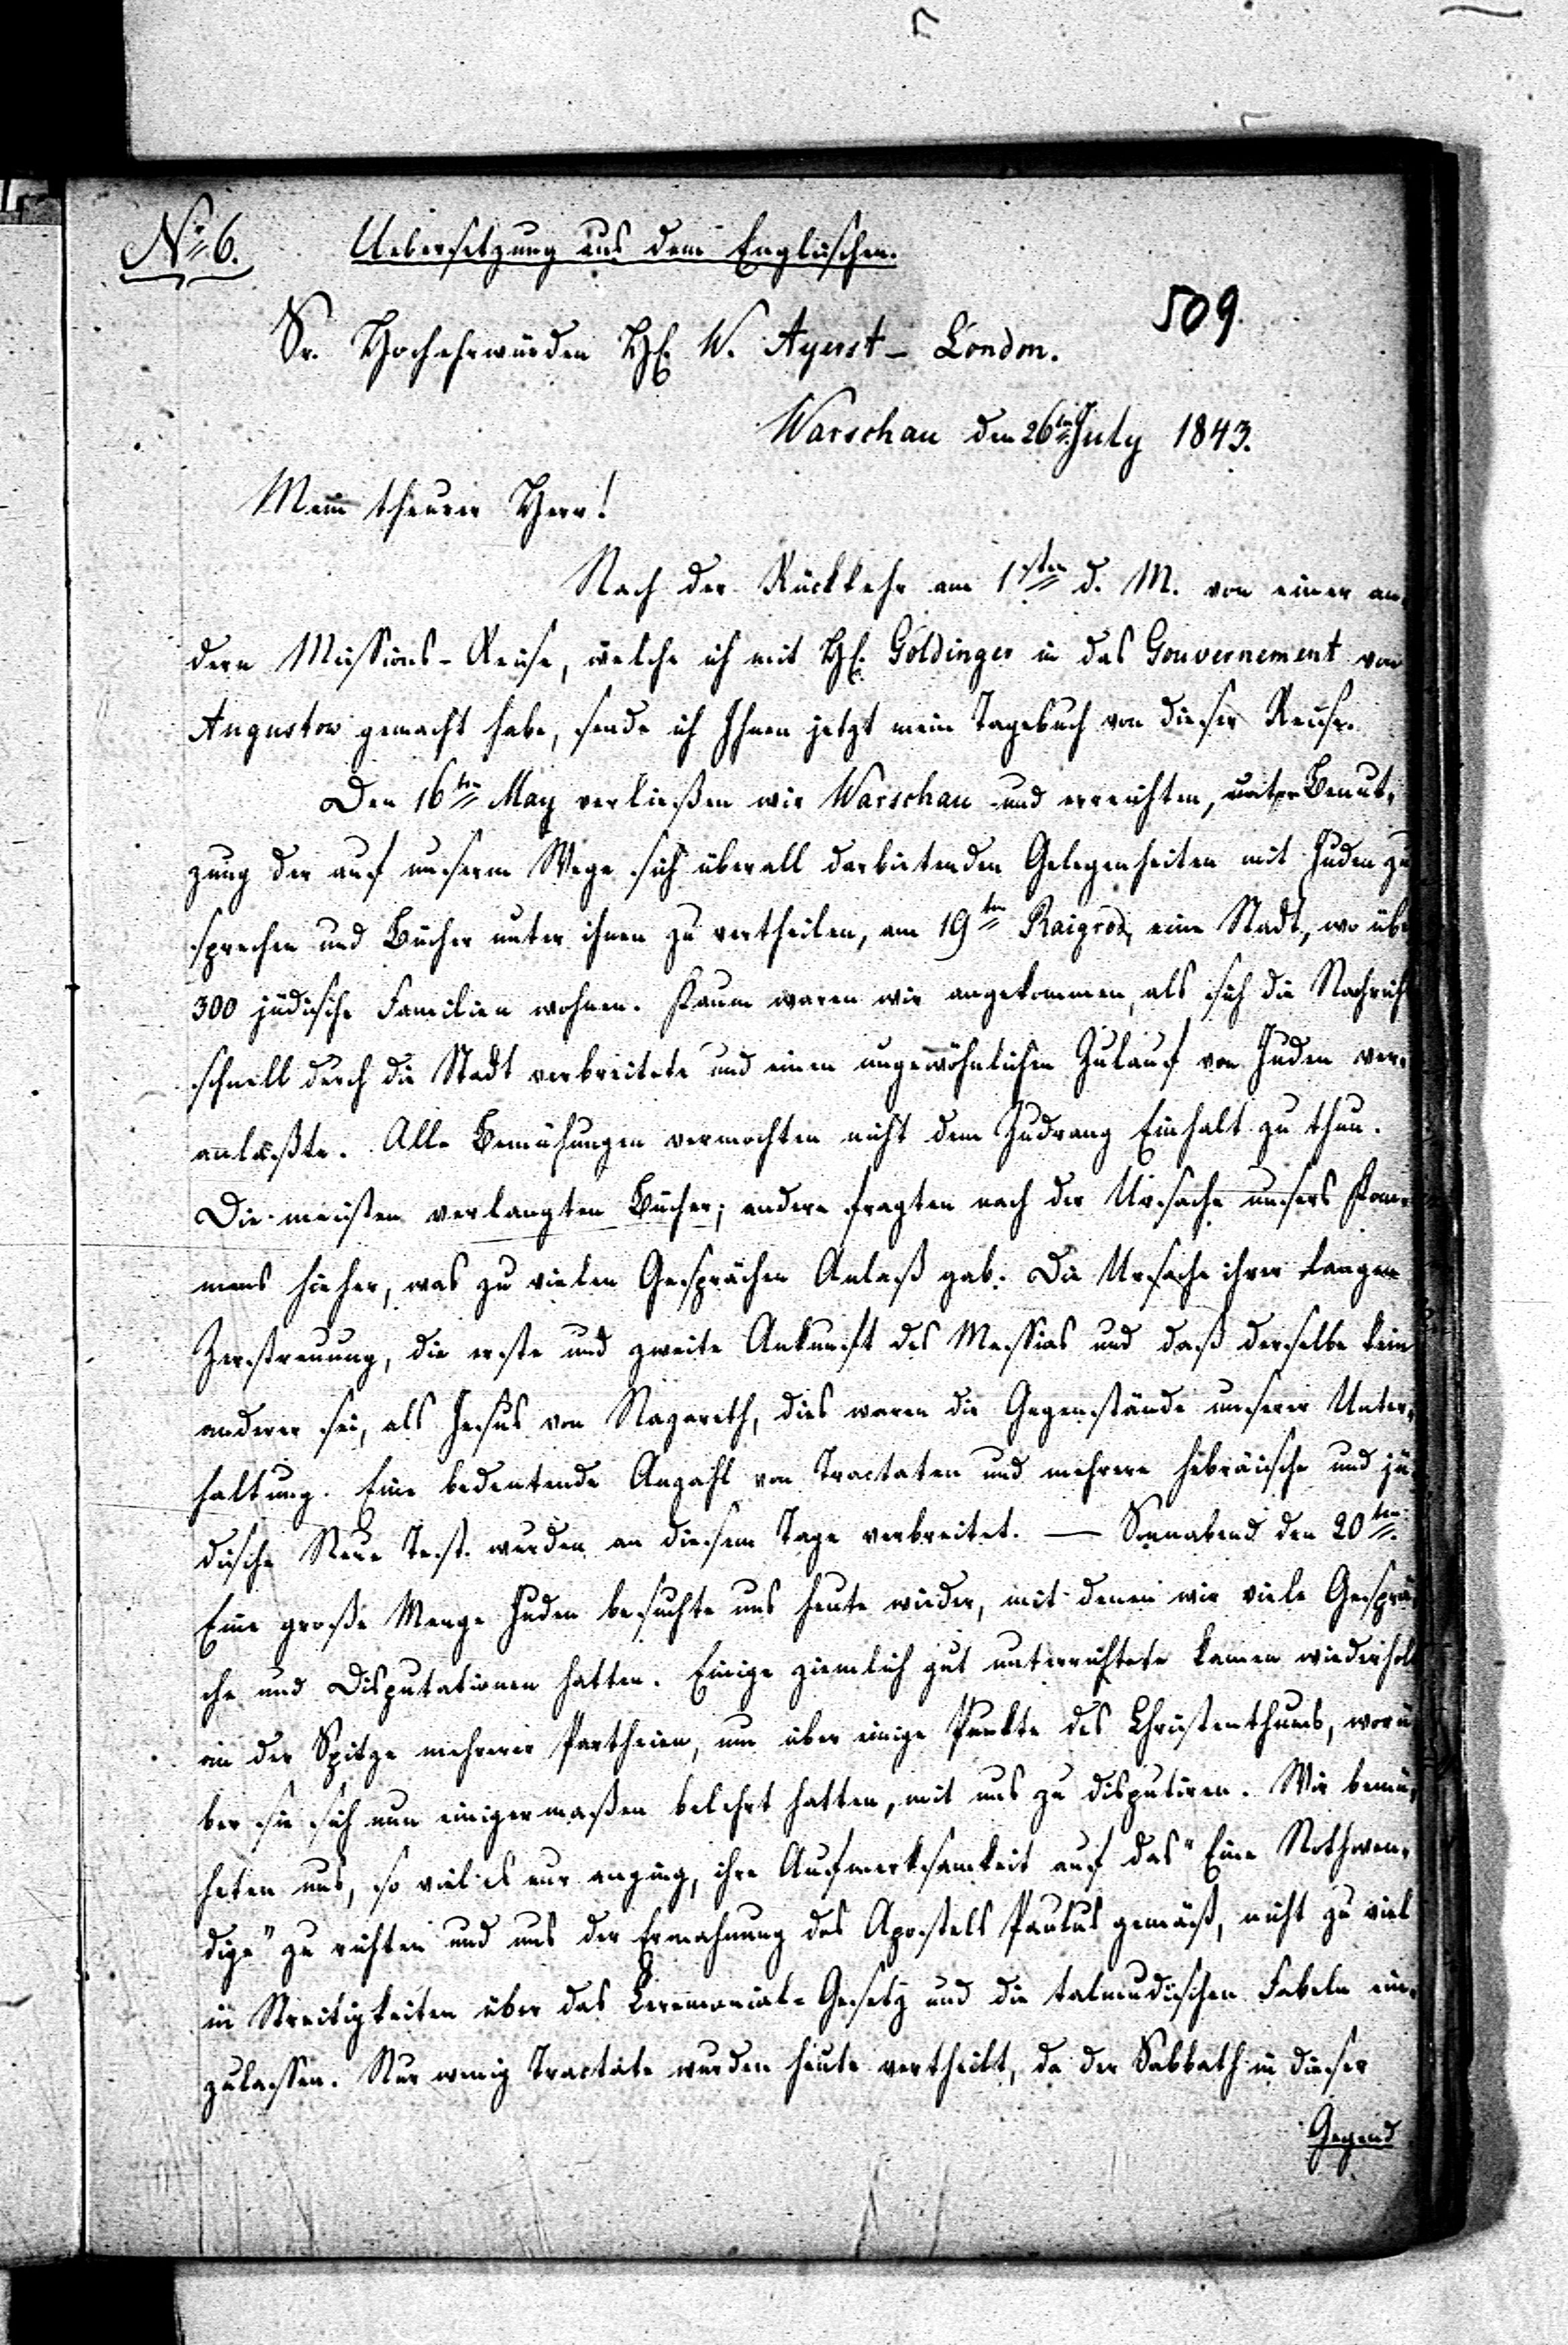 No 6. Uebersetzung aus dem Englischen.
509.
Sr. Hochehrwürden H. W. Ayerst – London.
Warschau den 26ten July 1843.
Mein theurer Herr!
Nach der Rückkehr am 1sten d. M. von einer an-
dern Missions-Reise, welche ich mit H. Goldinger in das Gouvernement von
Augustow gemacht habe, sende ich Ihnen jetzt mein Tagebuch von dieser Reise.
Den 16ten May verließen wir Warschau und erreichten, unter Benut-
zung der auf unserm Wege sich überall darbietenden Gelegenheiten mit Juden zu
sprechen und Bücher unter ihnen zu vertheilen, am 19ten Raigrod, eine Stadt, wo übe
300 jüdische Familien wohnen. Kaum waren wir angekommen, als sich die Nachrich
schnell durch die Stadt verbreitete und einen ungewöhnlichen Zulauf von Juden ver-
anlaßte. Alle Bemühungen vermochten nicht dem Zudrang Einhalt zu thun.
Die meisten verlangten Bücher; andere fragten nach der Ursache unsers Kom-
mens hieher, was zu vielen Gesprächen Anlaß gab. Die Ursache ihrer langen
Zerstreuung, die erste und zweite Ankunft des Messias und daß derselbe kein
anderer sei, als Jesus von Nazareth, dies waren die Gegenstände unserer Unter-
haltung. Eine bedeutende Anzahl von Tractaten und mehrere hebräische und jü-
dische Neue Test. wurden an diesem Tage verbreitet. — Sonnabend den 20ten
Eine große Menge Juden besuchte uns heute wieder, mit denen wir viele Gesprä-
che und Disputationen hatten. Einige ziemlich gut unterrichtete kamen wiederholt
an der Spitze mehrerer Partheien, um über einige Punkte des Christenthums, worü-
ber sie sich nun einigermaßen belehrt hatten, mit uns zu disputiren. Wir bemü-
heten uns, so viel es nur anging, ihre Aufmerksamkeit auf das "Eine Nothwen-
dige" zu richten und uns der Ermahnung des Apostels Paulus gemäß, nicht zu viel
in Streitigkeiten über das Ceremonial-Gesetz und die talmudischen Fabeln ein-
zulassen. Nur wenig Tractate wurden heute vertheilt, da der Sabbath in dieser
Gegend